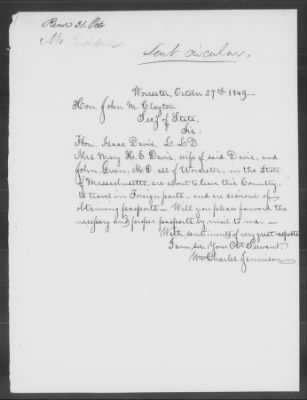 Recd 31. Oct
Mr
Sent circular.
Worcester, October 27th 1849.
Hon. John M. Clayton
Secy of State,
Sir
Hon. Isaac Davis, L.L.D.
Mrs Mary H. E. Davis, wife of said Davis, and
John Green, M.D. all of Worcester, in the State
of Massachusetts, are about to leave this Country,
to travel in Foreign parts, and are desirous of
obtaining passports — Will you please forward the
necessary and proper passports by mail to me. —
With sentiments of very great respect
I am, sir, Your Obt Servant,
Wm Charles Jennison